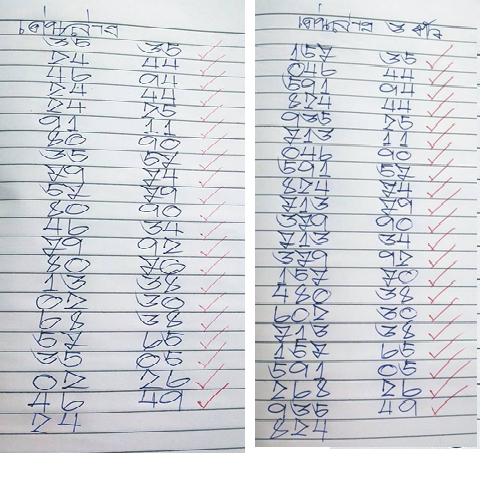 เด่นล่าง
35 35
24 44
46 94
24 44
24 25
91 11
80 90
35 57
79 74
57 79
80 90
46 34
79 92
80 70
13 38
02 30
68 38
57 65
35 05
02 26
46 49
24
เด่นล่าง 3 ตัว
157 35
046 44
591 94
824 44
935 25
713 11
046 90
591 57
824 74
713 79
379 90
713 34
379 92
157 70
480 38
602 30
713 38
157 65
591 05
268 26
935 49
824